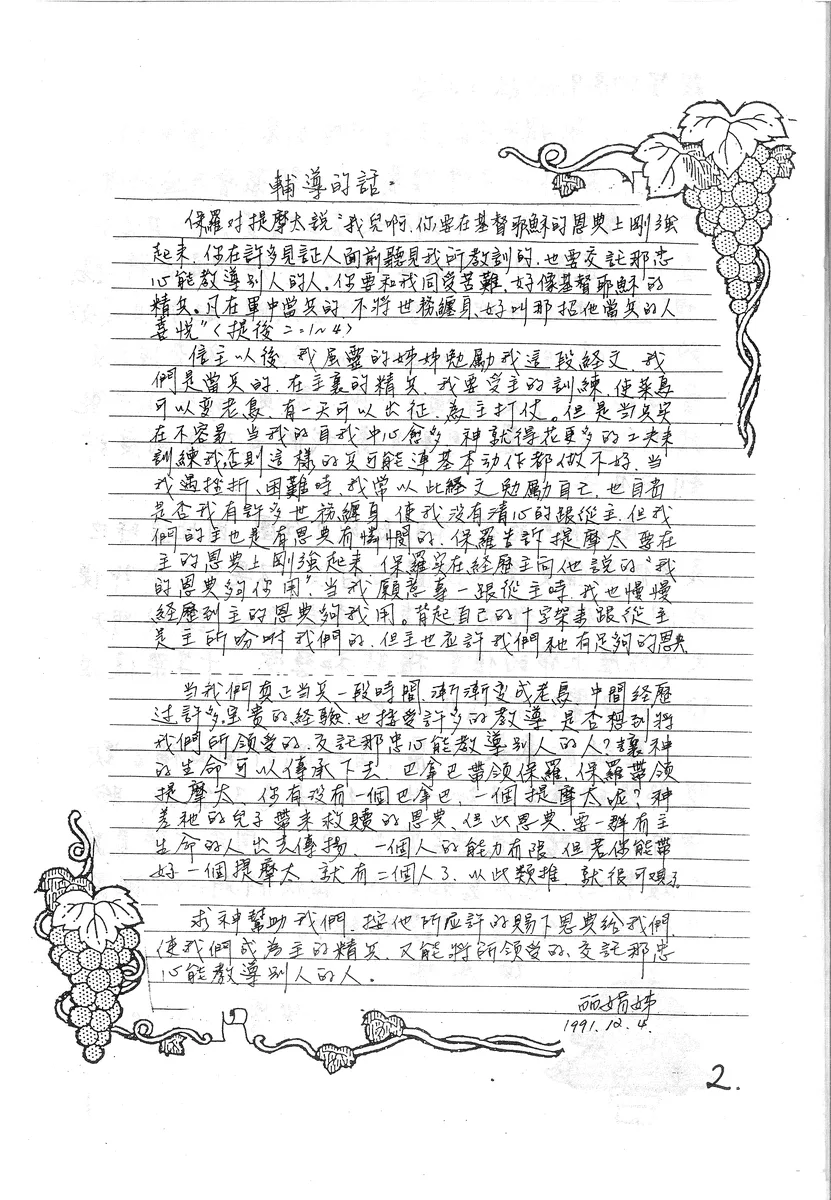 輔導的話.
保羅对提摩太說“我兒啊,你要在基督耶穌的恩典上剛強
起來,你在許多見証人面前聽見我所教訓的,也要交託那忠
心能教導別人的人。你要和我同受苦難,好像基督耶穌的
精兵。凡在軍中當兵的,不將世務纏身,好叫那招他當兵的人
喜悅”(提後二:1~4)
信主以後,我屬靈的姊姊勉勵我這段経文,我
們是當兵的,在主裏的精兵,我要受主的訓練,使菜鳥
可以变老鳥,有一天可以出征,為主打仗。但是当兵实
在不容易,当我的自我中心愈多,神就得花更多的工夫來
訓練我否則這樣的兵可能連基本动作都做不好,当
我遇挫折、困難時,我常以此経文勉勵自己,也自省
是否我有許多世務纏身,使我没有清心的跟從主,但我
們的主也是有恩典有憐憫的,保羅告訴提摩太要在
主的恩典上剛強起來,保羅实在経歷主向他說的“我
的恩典夠你用”,当我願意專一跟從主時,我也慢慢
経歷到主的恩典夠我用。背起自己的十字架來跟從主
是主所吩咐我們的,但主也应許我們祂有足夠的恩典
当我們真正当兵一段時間,漸漸变成老鳥,中間経歷
过許多宝貴的経驗,也接受許多的教導,是否想到將
我們所領受的,交託那忠心能教導別人的人?讓神
的生命可以傳承下去,巴拿巴帶領保羅,保羅帶領
提摩太,你有没有一個巴拿巴,一個提摩太呢?神
差祂的兒子帶來救贖的恩典,但此恩典,要一群有主
生命的人出去傳揚,一個人的能力有限,但若你能帶
好一個提摩太,就有二個人了,以此類推,就很可观了
求神幫助我們,按他所应許的賜下恩典給我們,
使我們成為主的精兵,又能將所領受的,交託那忠
心能教導別人的人。
娟姊
1991.12.4.
2.